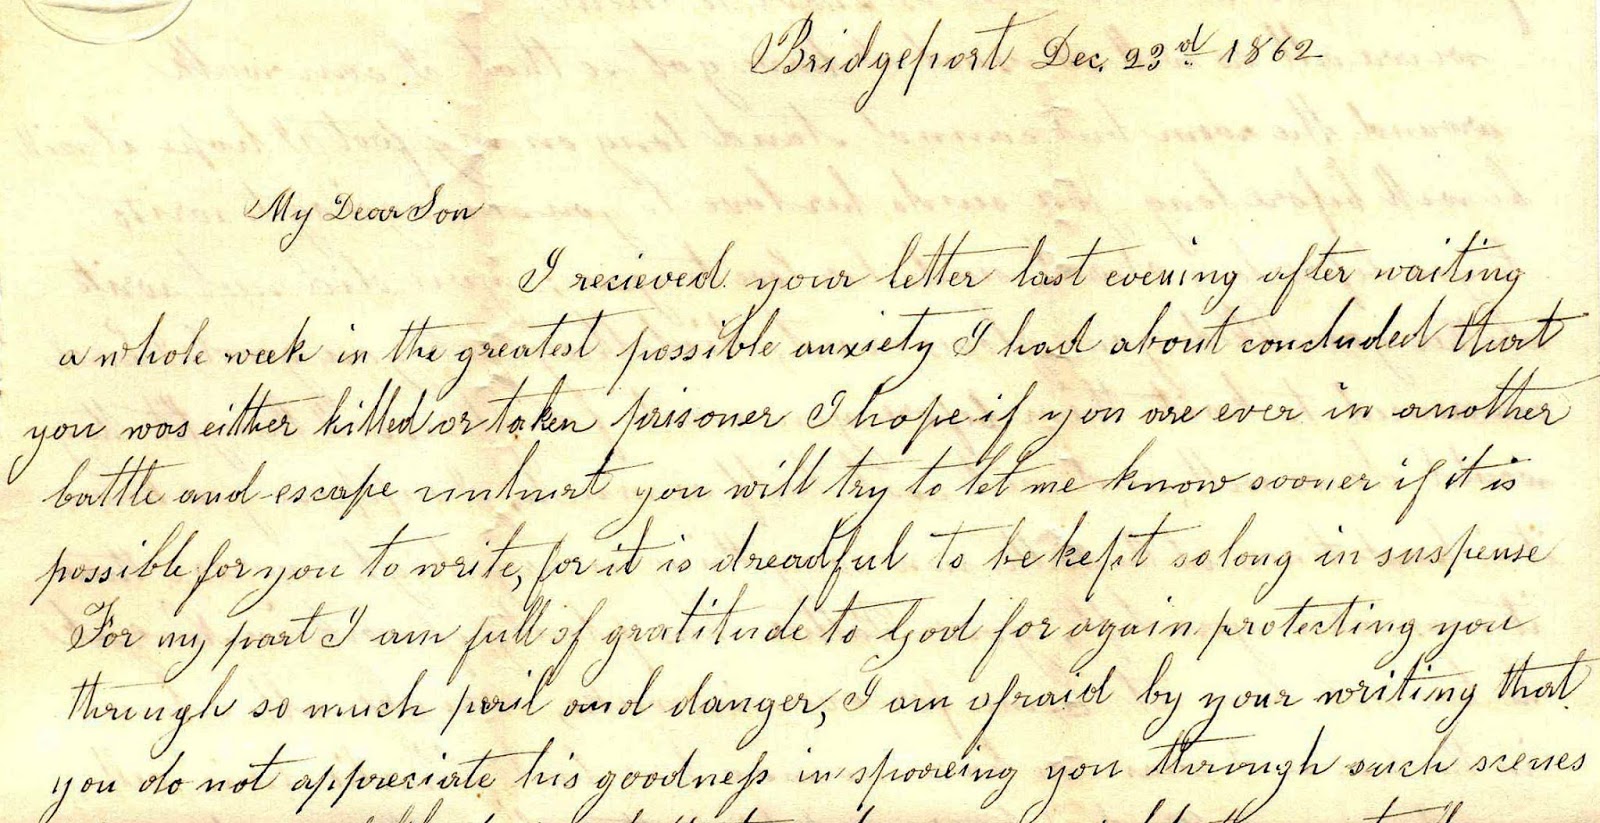 Bridgeport Dec. 23d 1862
My Dear Son
I recieved your letter last evening after waiting
a whole week in the greatest possible anxiety I had about concluded that
you was either killed or taken prisoner I hope if you are ever in another
battle and escape unhurt you will try to let me know sooner if it is
possible for you to write, for it is dreadful to be kept so long in suspense
For my part I am full of gratitude to God for again protecting you
through so much peril and danger, I am afraid by your writing that
you do not appreciate his goodness in spareing you through such scenes